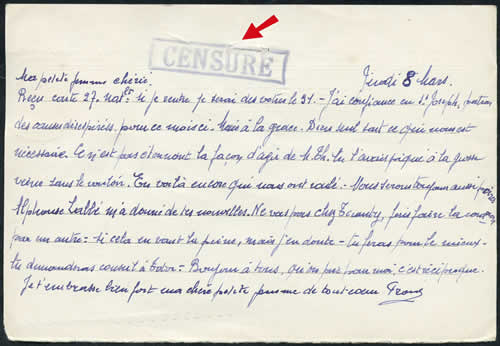 CENSURÉ
Jeudi 8 Mars.
Ma petite femme chérie.
Reçu carte 27. si je rentre je serai des vôtres le 31. - J'ai confiance en St Joseph, patron
des causes désespérées, pour ce mois ci. Mais à la grace. Dieu seul sait ce qui nous est
nécessaire. Ce n'est pas étonnant la façon d'agir de M. Th. tu l'avais piqué à la grosse
veine sans le vouloir. En voilà encore qui nous ont Nous serons toujours aussi
Alphonse Labbé m'a donné de tes nouvelles. Ne vas pas chez fais faire la
par un autre - si cela en vaut la peine, mais j'en doute - tu feras pour le mieux -
tu demanderas conseil à Bonjour à tous, qu'on prie pour moi, c'est réciproque.
Je t'embrasse bien fort ma chère petite femme de tout cœur